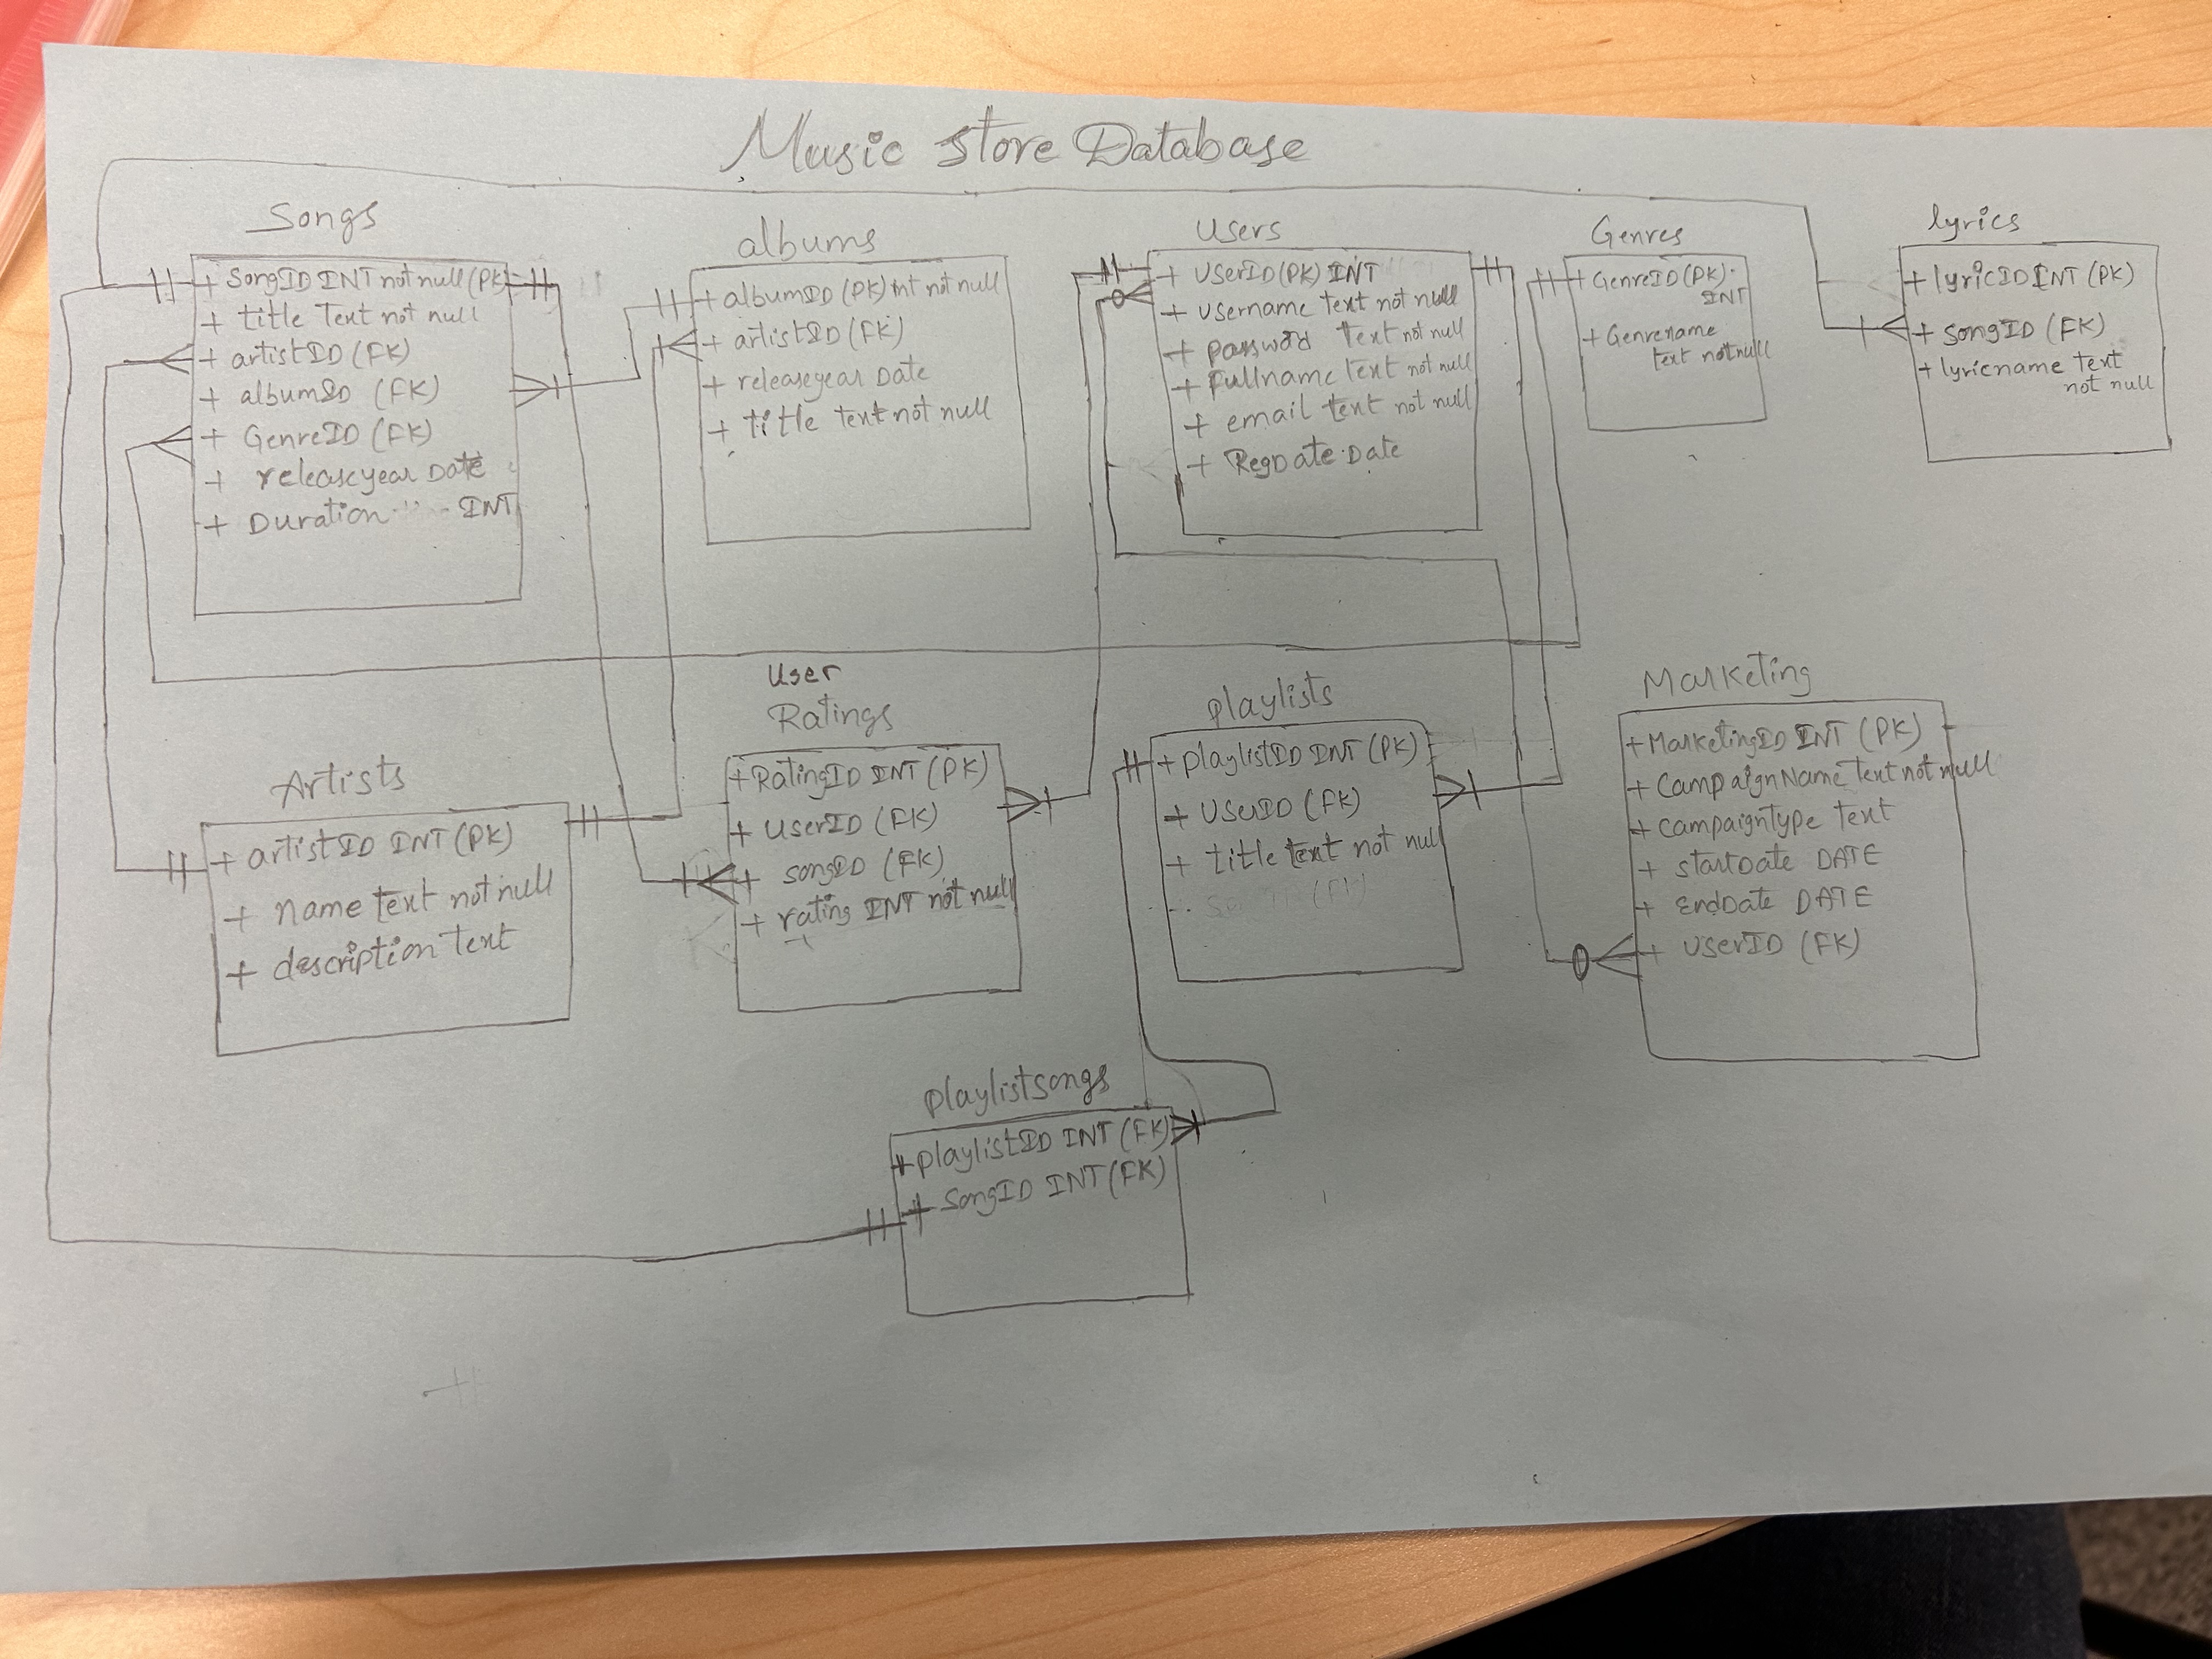 Music Store Database
Songs
+ SongID INT not null (PK)
+ title Text not null
+ artistID (FK)
+ albumID (FK)
+ GenreID (FK)
+ releaseyear Date
+ Duration INT
albums
+ albumID (PK) int not null
+ artistID (FK)
+ releaseyear Date
+ title text not null
Users
+ UserID (PK) INT
+ username text not null
+ password Text not null
+ Fullname text not null
+ email text not null
+ RegDate Date
Genres
+ GenreID (PK)
INT
+ Genrename
text not null
lyrics
+ lyricID INT (PK)
+ songID (FK)
+ lyricname text
not null
Artists
+ artistID INT (PK)
+ name text not null
+ description text
User
Ratings
+ RatingID INT (PK)
+ UserID (FK)
+ songID (FK)
+ rating INT not null
playlists
+ playlistID INT (PK)
+ UserID (FK)
+ title text not null
(FK)
Marketing
+ MarketingID INT (PK)
+ CampaignName Text not null
+ campaignType Text
+ startDate DATE
+ EndDate DATE
+ UserID (FK)
playlistsongs
+ playlistID INT (FK)
+ SongID INT (FK)